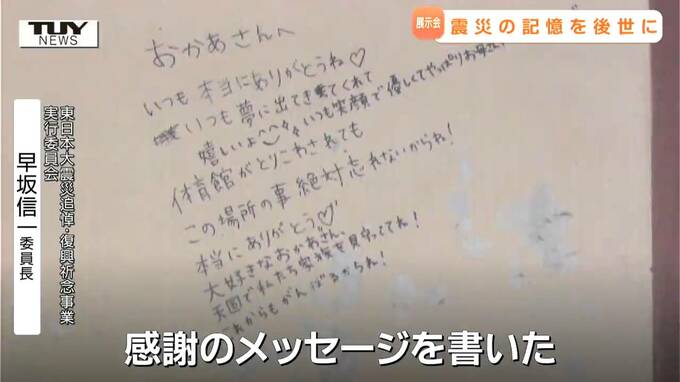 TUY
NEWS
展示会
震災の記憶を後世に
東日本大震災追悼・復興祈念事業
実行委員会
早坂信一 委員長
おかあさんへ
いつも本当にありがとうね♡
いつも夢に出てきてくれて
嬉しいよ^^ いつも笑顔で優しくてやっぱりお母さん
体育館がとりこわされても
この場所の事絶対忘れないからね!
本当にありがとう♡
大好きなおかあさん、
天国で私たち家族を見守っててね!
これからもがんばるからね!
感謝のメッセージを書いた